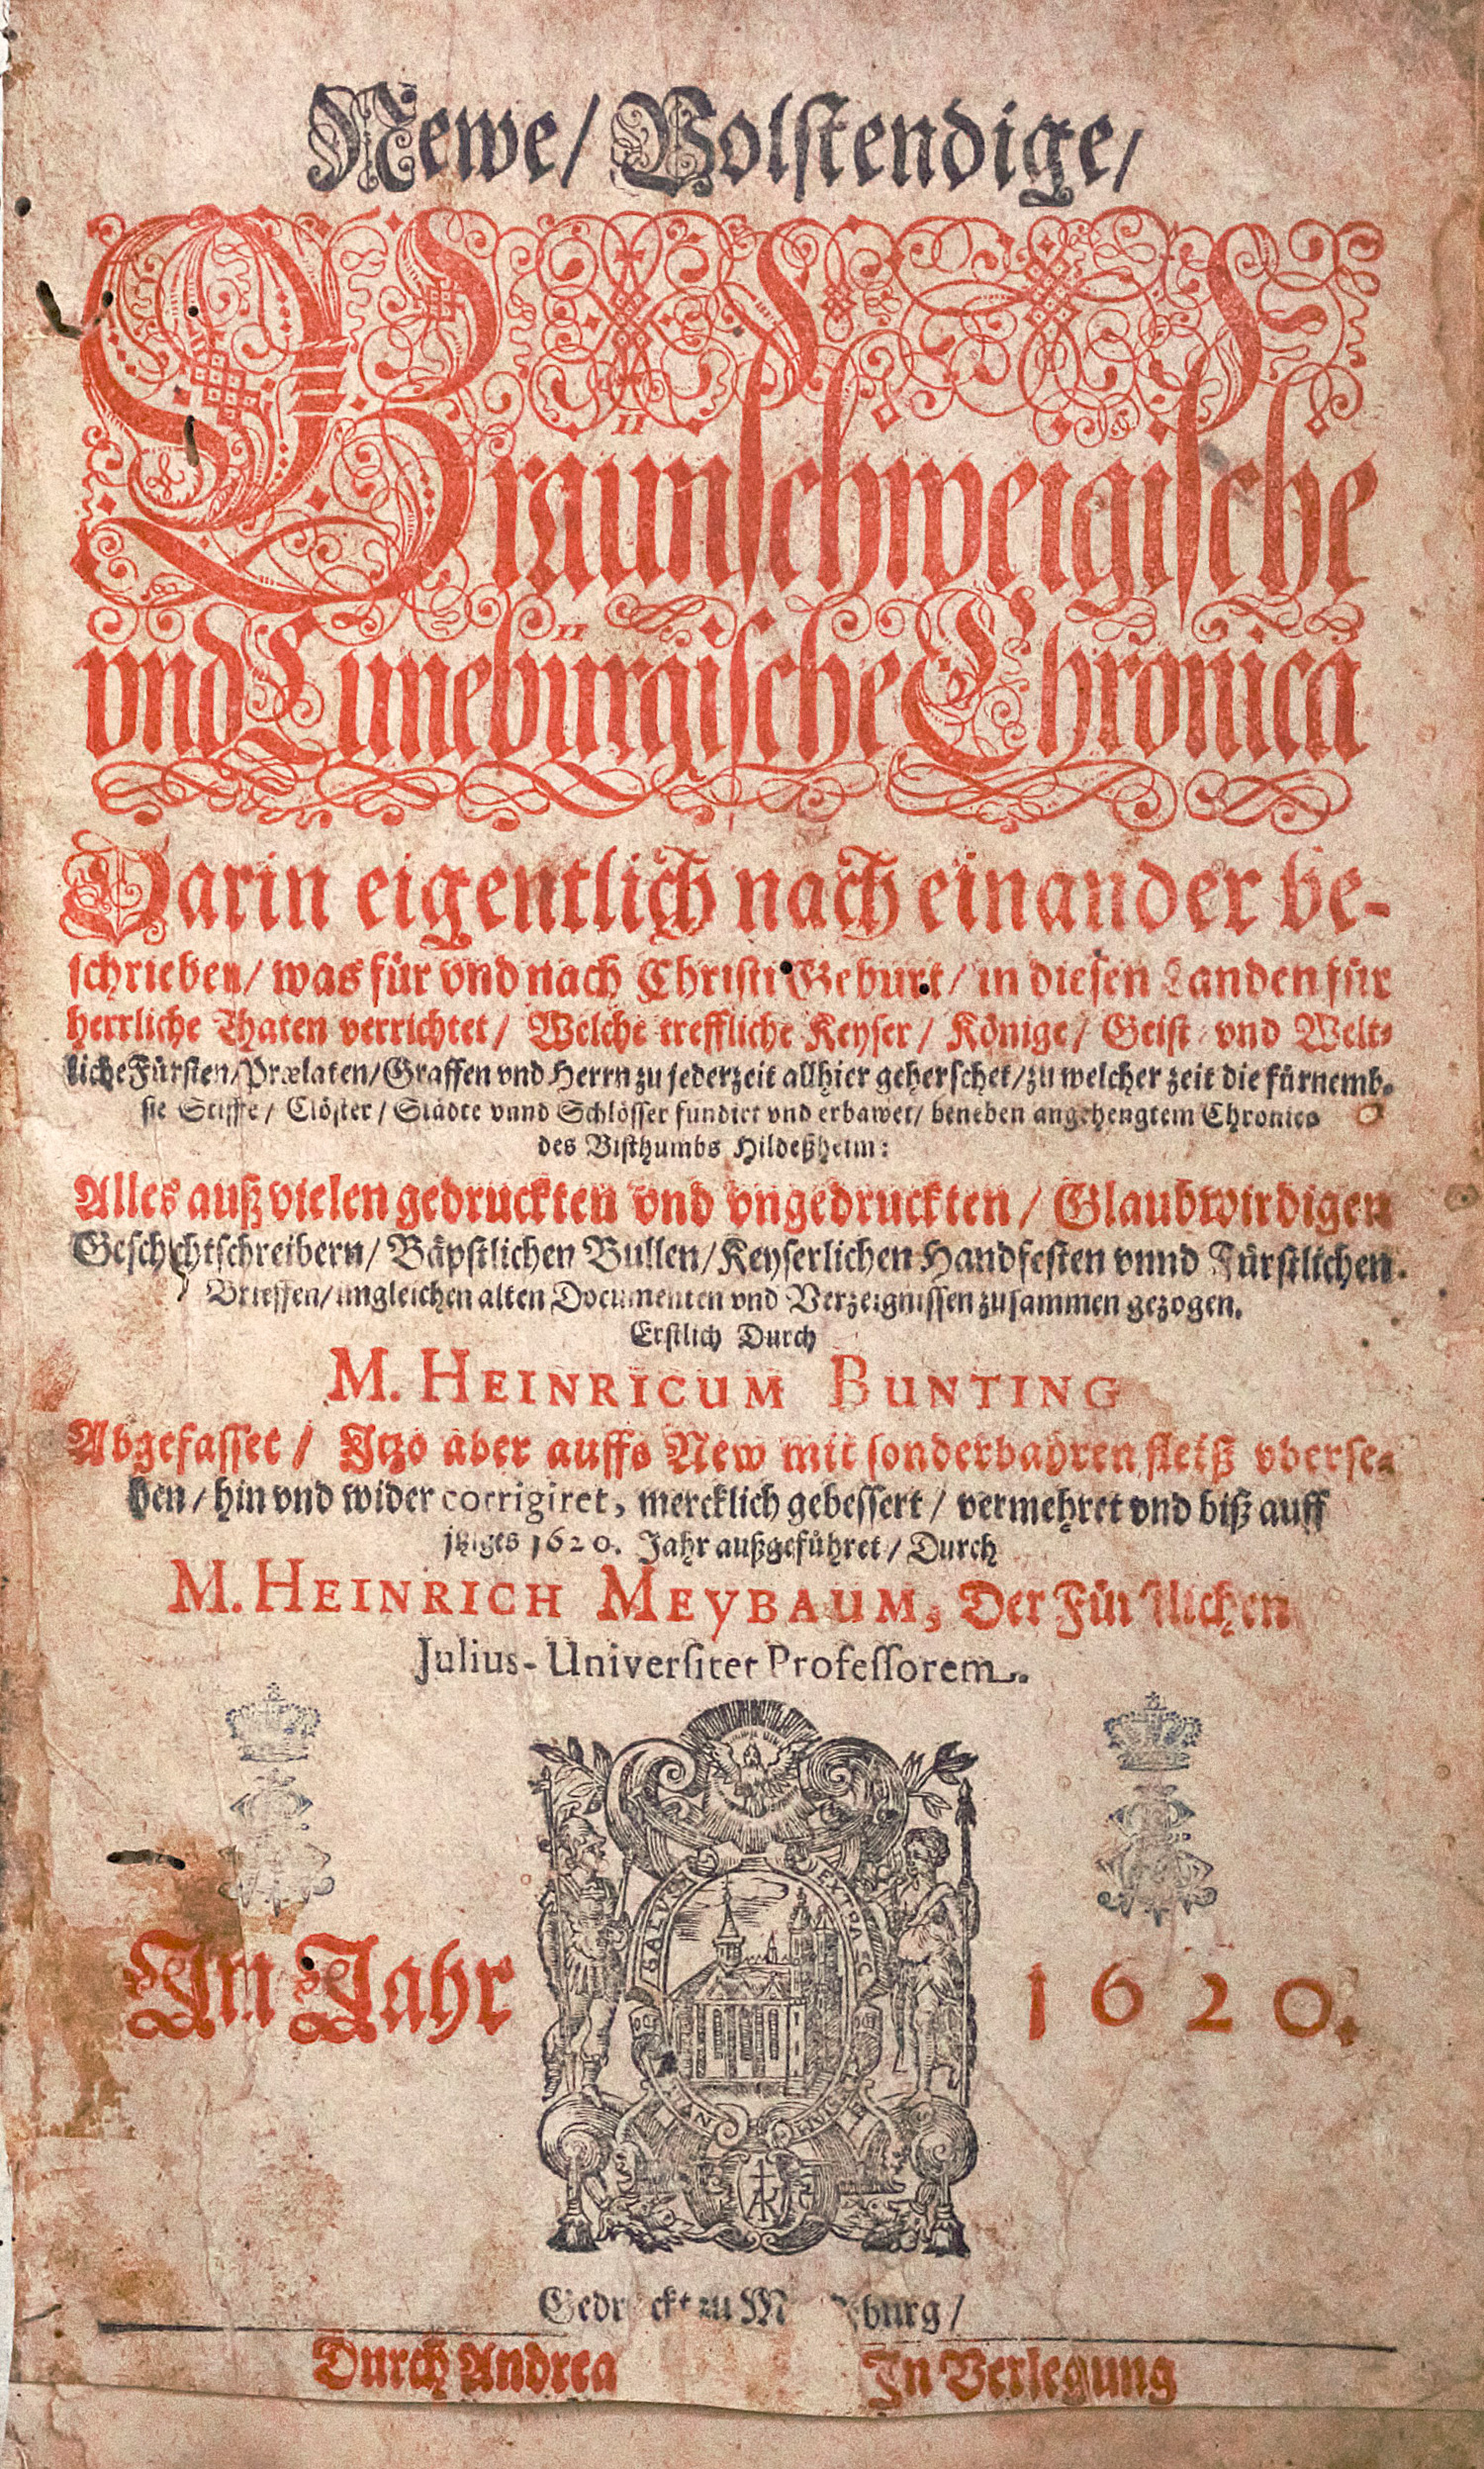 Newe/ Volſtendige/
Braunſchweigiſche
vnd Lüneburgiſche Chronica
Darin eigentlich nach einander be-
ſchrieben/ was für vnd nach Chriſti Geburt/ in dieſen Landen für
herrliche Thaten verrichtet/ Welche treffliche Keyſer/ Könige/ Geiſt- vnd Welt-
liche Fürſten/Prælaten/Graffen vnd Herrn zu jederzeit allhier geherſchet/zu welcher zeit die fürnemb-
ſte Stiffte/ Clöſter/ Städte vnnd Schlöſſer fundirt vnd erbawet/ beneben angehengtem Chronico
des Biſthumbs Hildeßheim:
Alles auß vielen gedruckten vnd vngedruckten/ Glaubwirdigen
Geſchichtſchreibern/ Bäpſtlichen Bullen/Keyſerlichen Handfeſten vnnd Fürſtlichen
Brieffen/imgleichen alten Documenten vnd Verzeignuſſen zuſammen gezogen.
Erſtlich Durch
M. HEINRICUM BUNTING
Abgefaſſet/ Itzo aber auffs New mit ſonderbahren fleiß vberſe-
hen/ hin vnd wider corrigiret, mercklich gebeſſert/ vermehret vnd biß auff
jtziges 1620. Jahr außgeführet/ Durch
M. HEINRICH MEYBAUM, Der Fürſtlichen
Julius-Univerſitet Profeſſorem.
GALVS EX PACE
AK
Im Jahr 1620.
Gedruckt zu Magdeburg/
Durch Andrea In Verlegung